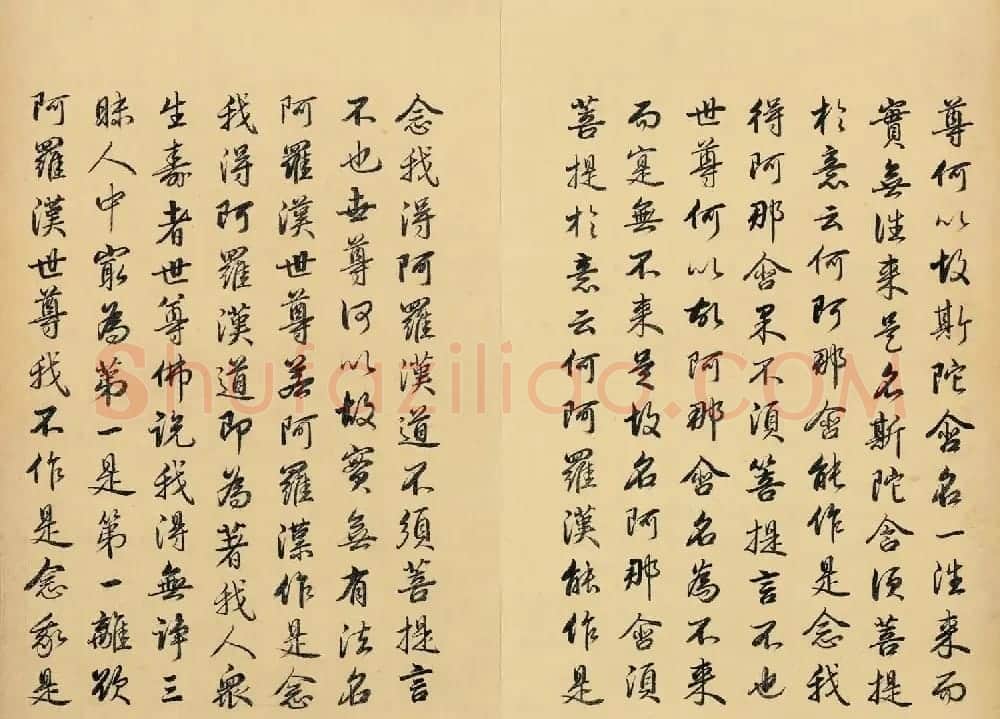 尊何以故斯陀含名一往来而
實無往来是名斯陀含須菩提
於意云何阿那含能作是念我
得阿那含果不須菩提言不也
世尊何以故阿那含名為不来
而寔無不来是故名阿那含須
菩提於意云何阿羅漢能作是
念我得阿羅漢道不須菩提言
不也世尊何以故實無有法名
阿羅漢世尊若阿羅漢作是念
我得阿羅漢道即為著我人眾
生壽者世尊佛説我得無諍三
昧人中冣為第一是第一離欲
阿羅漢世尊我不作是念我是
Shufaziliao.COM